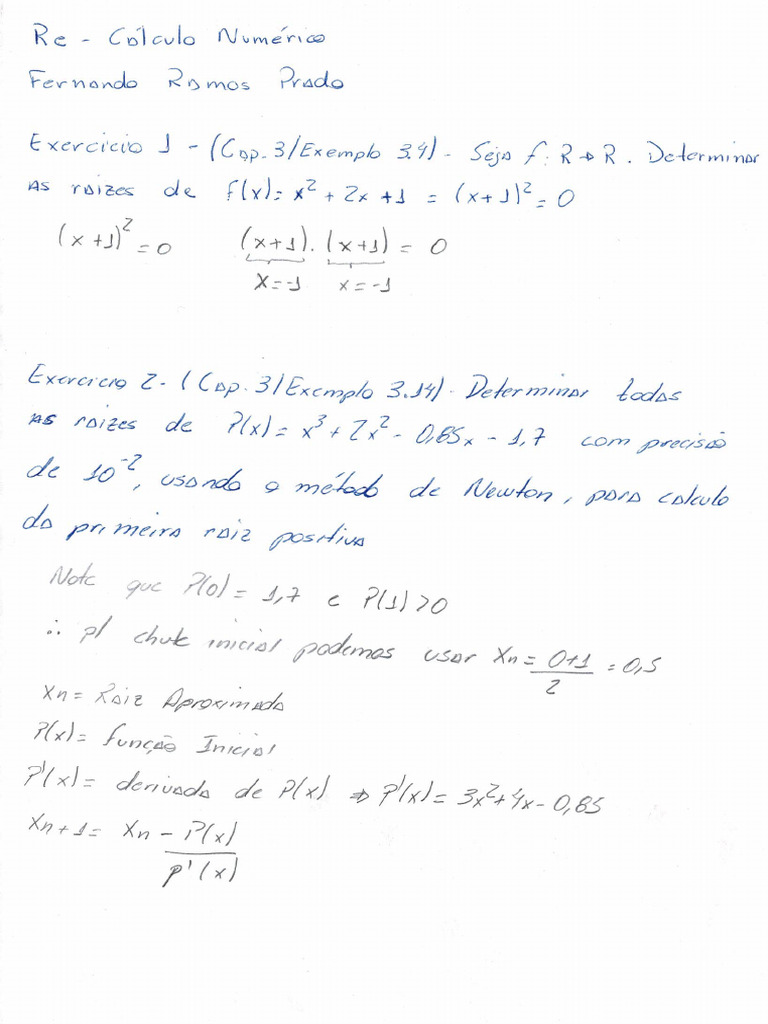 Re - Cálculo Numérico
Fernando Ramos Prado
Exercício 1 - (Cap. 3/Exemplo 3.4) - Seja f: R → R. Determinar
as raizes de f(x) = x² + 2x + 1 = (x+1)² = 0
(x+1)² = 0 (x+1) . (x+1) = 0
x = -1 x = -1
Exercicio 2 - (Cap. 3/Exemplo 3.14) - Determinar todas
as raizes de P(x) = x³ + 2x² - 0,85x - 1,7 com precisão
de 10⁻², usando o método de Newton, para calculo
da primeira raiz positiva
Note que P(0) = 1,7 e P(1) > 0
∴ p/ chute inicial podemos usar Xn = (0+1)/2 = 0,5
Xn = Raiz Aproximada
P(x) = função Inicial
P'(x) = derivada de P(x) ⇒ P'(x) = 3x² + 4x - 0,85
Xn + 1 = Xn - P(x)/P'(x)